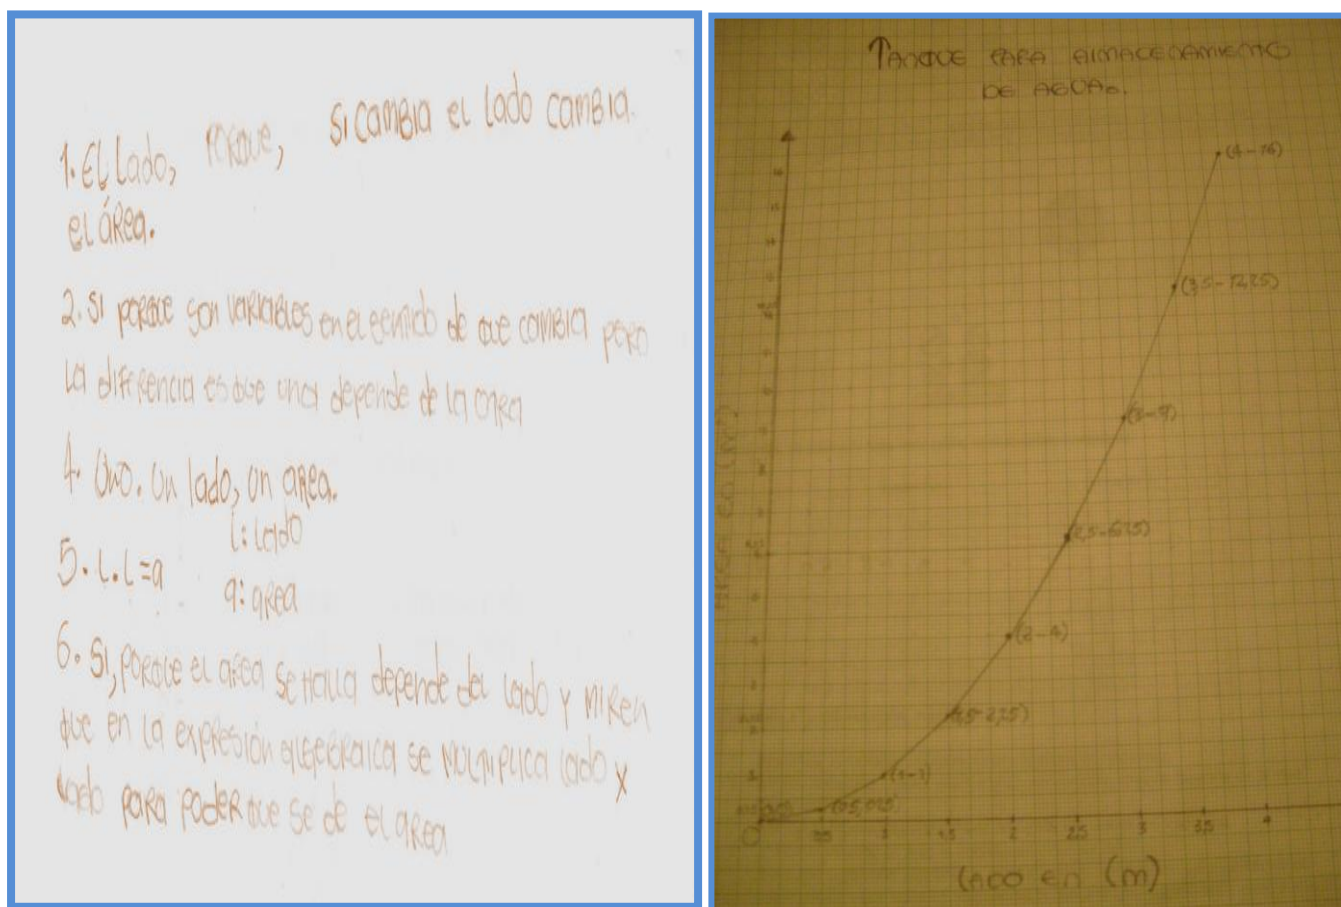 1. El lado, PORQUE, si cambia el lado cambia.
el área.
2. si porque son variables en el sentido de que cambia pero
la diferencia es que una depende de la otra
4. Uno. Un lado, un area.
5. l.l=a l: lado
a: area
6. Si, porque el area se halla depende del lado y miren
que en la expresión algebraica se multiplica lado x
lado para poder que se de el area
TANQUE PARA ALMACENAMIENTO
DE AGUA.
(4-16)
(3,5-12,25)
(3-9)
(2,5-6,25)
(2-4)
(1,5-2,25)
(1-1)
(0,5, 0,25)
0 0,5 1 1,5 2 2,5 3 3,5 4
lado en (m)